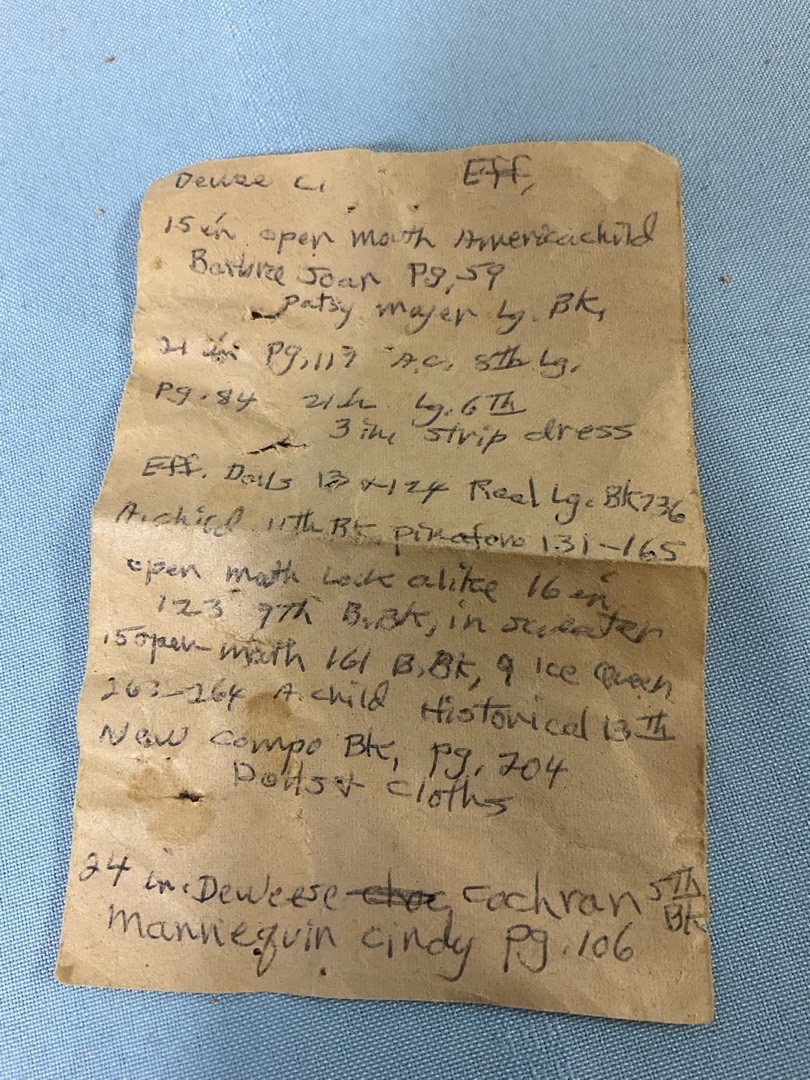 Dewee C. Eff,
15 in open mouth Americachild
Joan Pg, 59
patsy moyer Lg. BK,
21 in Pg, 117 A.C. 8th Lg.
Pg. 84 21in Lg. 6TH
3 in, strip dress
Eff. Dolls &124 Reel Lg. BK736
A. child 11th BK pinafore 131-165
open moth Look alike 16 in
123 9th B.BK, in sweater
15 open-moth 161 B.BK, 9 ice Queen
263-264 A. child Historical 13TH
New compo BK, pg, 204
Dolls & cloths
24 in. DeWeese Cochran 5TH BK
mannequin cindy pg. 106